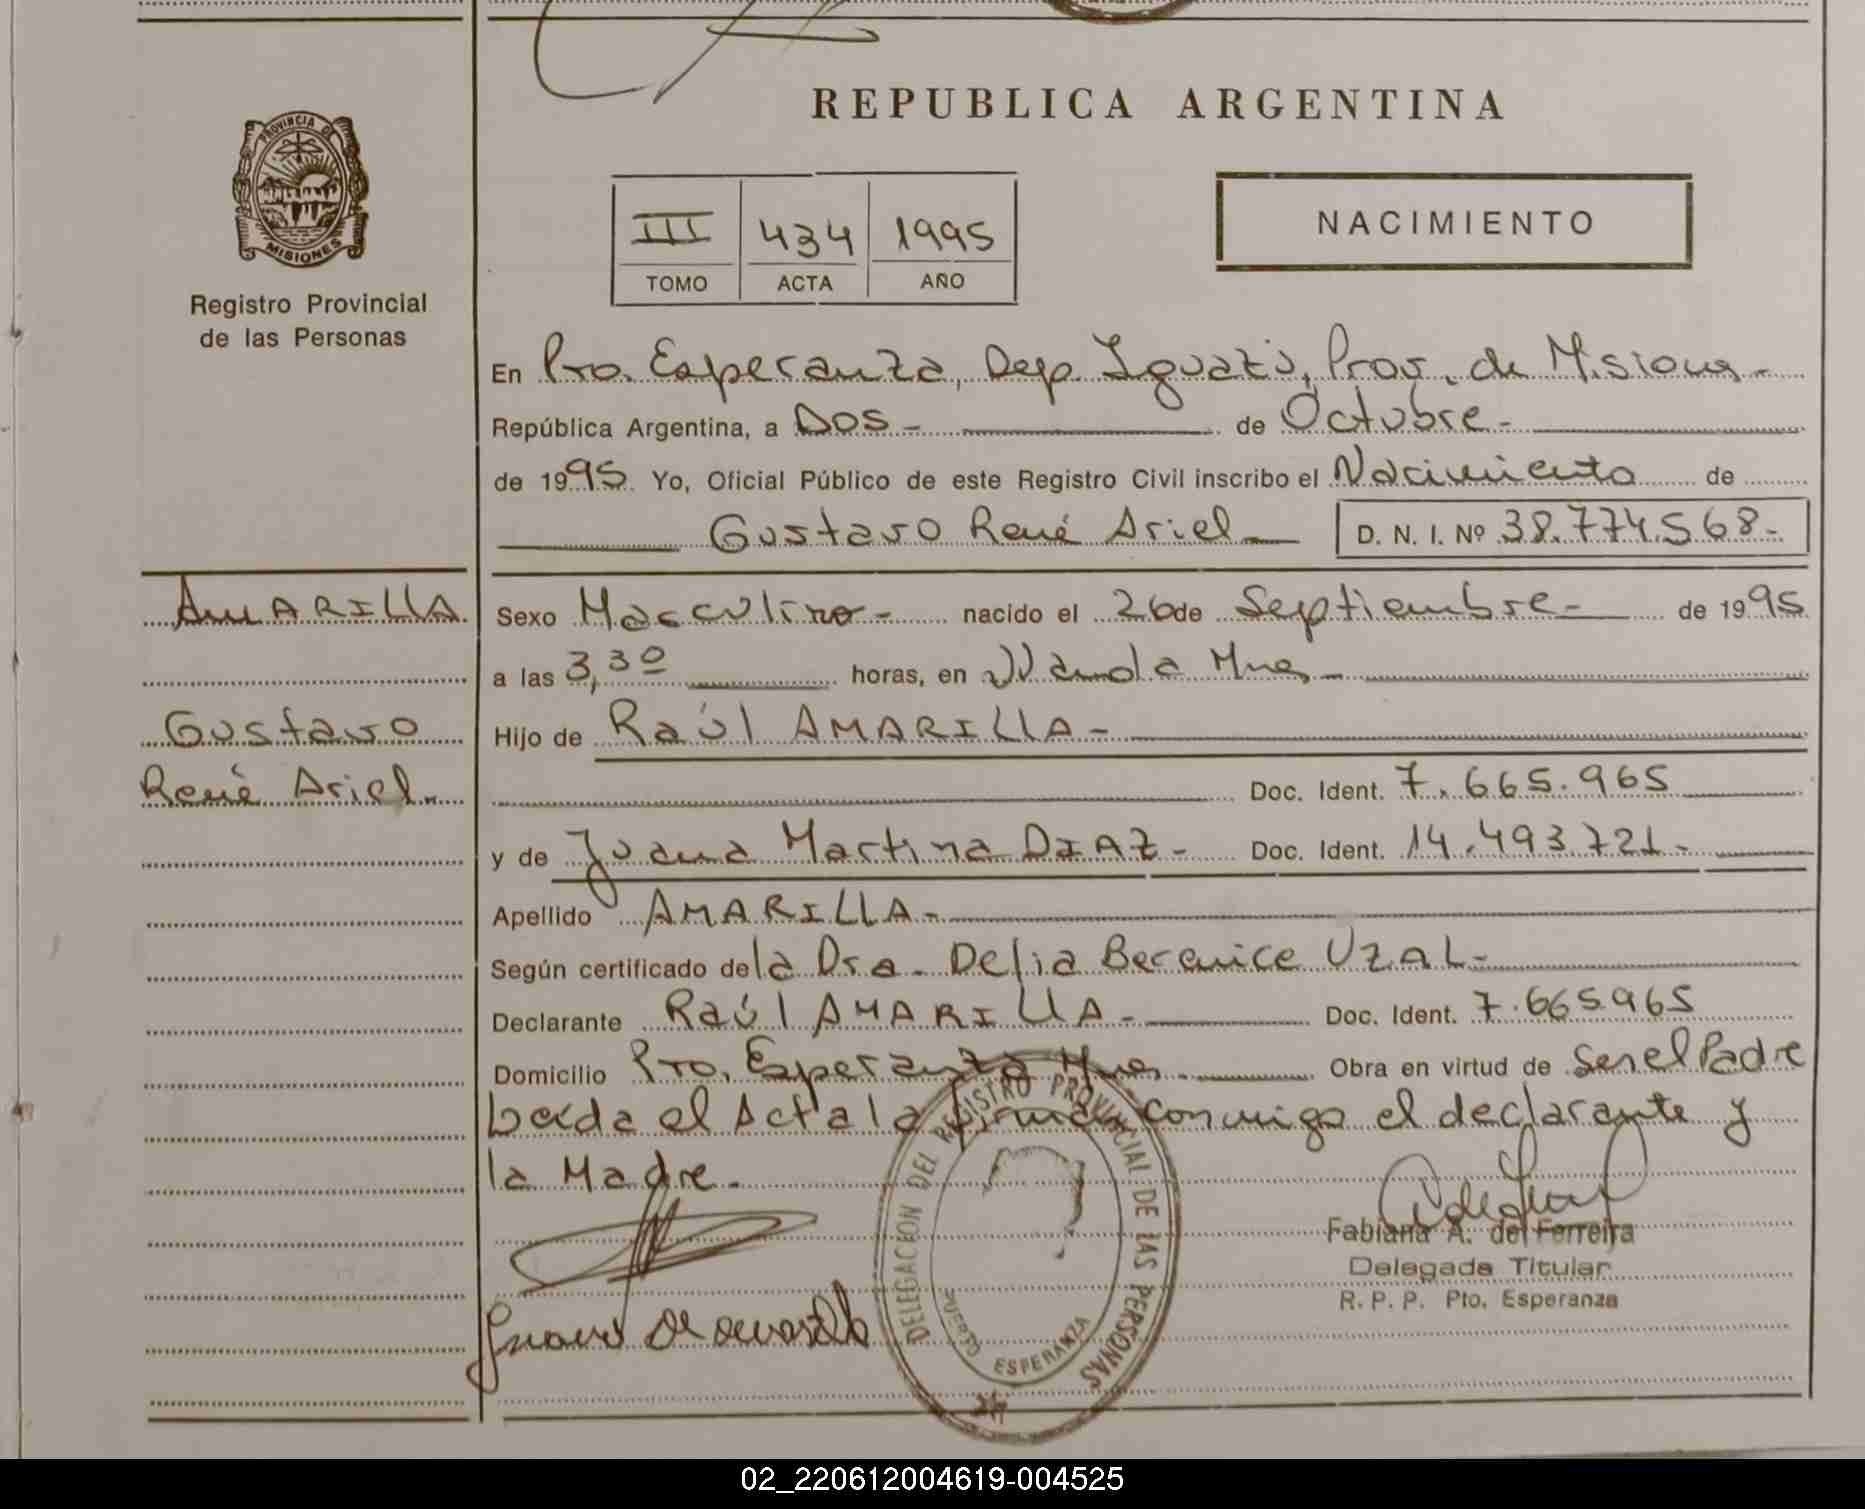 REPUBLICA ARGENTINA
PROVINCIA DE
MISIONES
Registro Provincial
de las Personas
III 434 1995
TOMO ACTA AÑO
NACIMIENTO
En Pto. Esperanza, Dep. Iguazú, Prov. de Misiones.-
República Argentina, a Dos - de Octubre -
de 1995. Yo, Oficial Público de este Registro Civil inscribo el Nacimiento de
Gustavo René Ariel D. N. I. Nº 38.774.568-
AMARILLA
Sexo Masculino - nacido el 26 de Septiembre - de 1995
a las 3,30 horas, en Wanda Mnes -
Gustavo
René Ariel.
Hijo de Raúl AMARILLA -
Doc. Ident. 7.665.965
y de Juana Martina DIAZ - Doc. Ident. 14.493.721-
Apellido AMARILLA -
Según certificado de la Dra. Delia Berenice UZAL -
Declarante Raúl AMARILLA - Doc. Ident. 7.665.965
Domicilio Pto. Esperanza Mnes - Obra en virtud de Ser el Padre
Leída el Acta la firman conmigo el declarante y
la Madre.
DELEGACION DEL REGISTRO PROVINCIAL DE LAS PERSONAS
PUERTO ESPERANZA
Fabiana A. de Ferreira
Delegada Titular
R. P. P. Pto. Esperanza
02_220612004619-004525